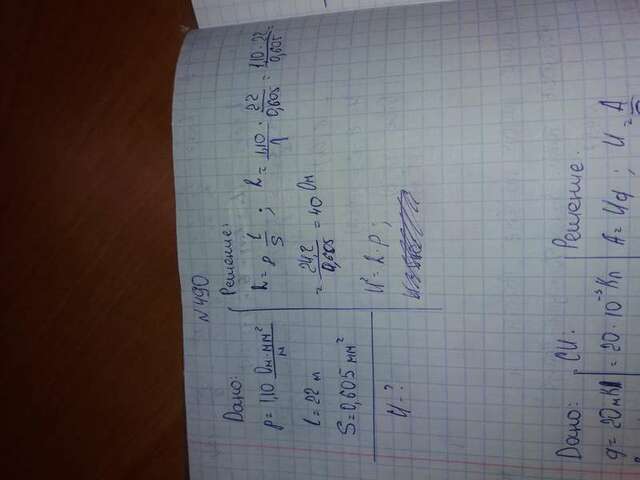 N 490
Дано:
ρ = 1,10 Ом·мм²/м
l = 22 м
S = 0,605 мм²
U - ?
Решение:
R = ρ l/S ; R = 1,10/1 · 22/0,605 = 1,10·22/0,605 =
= 24,2/0,605 = 40 Ом
U² = R·P ;
Дано:
q = 20 мКл
СИ:
= 20·10⁻³ Кл
Решение.
A = Uq ; U = A